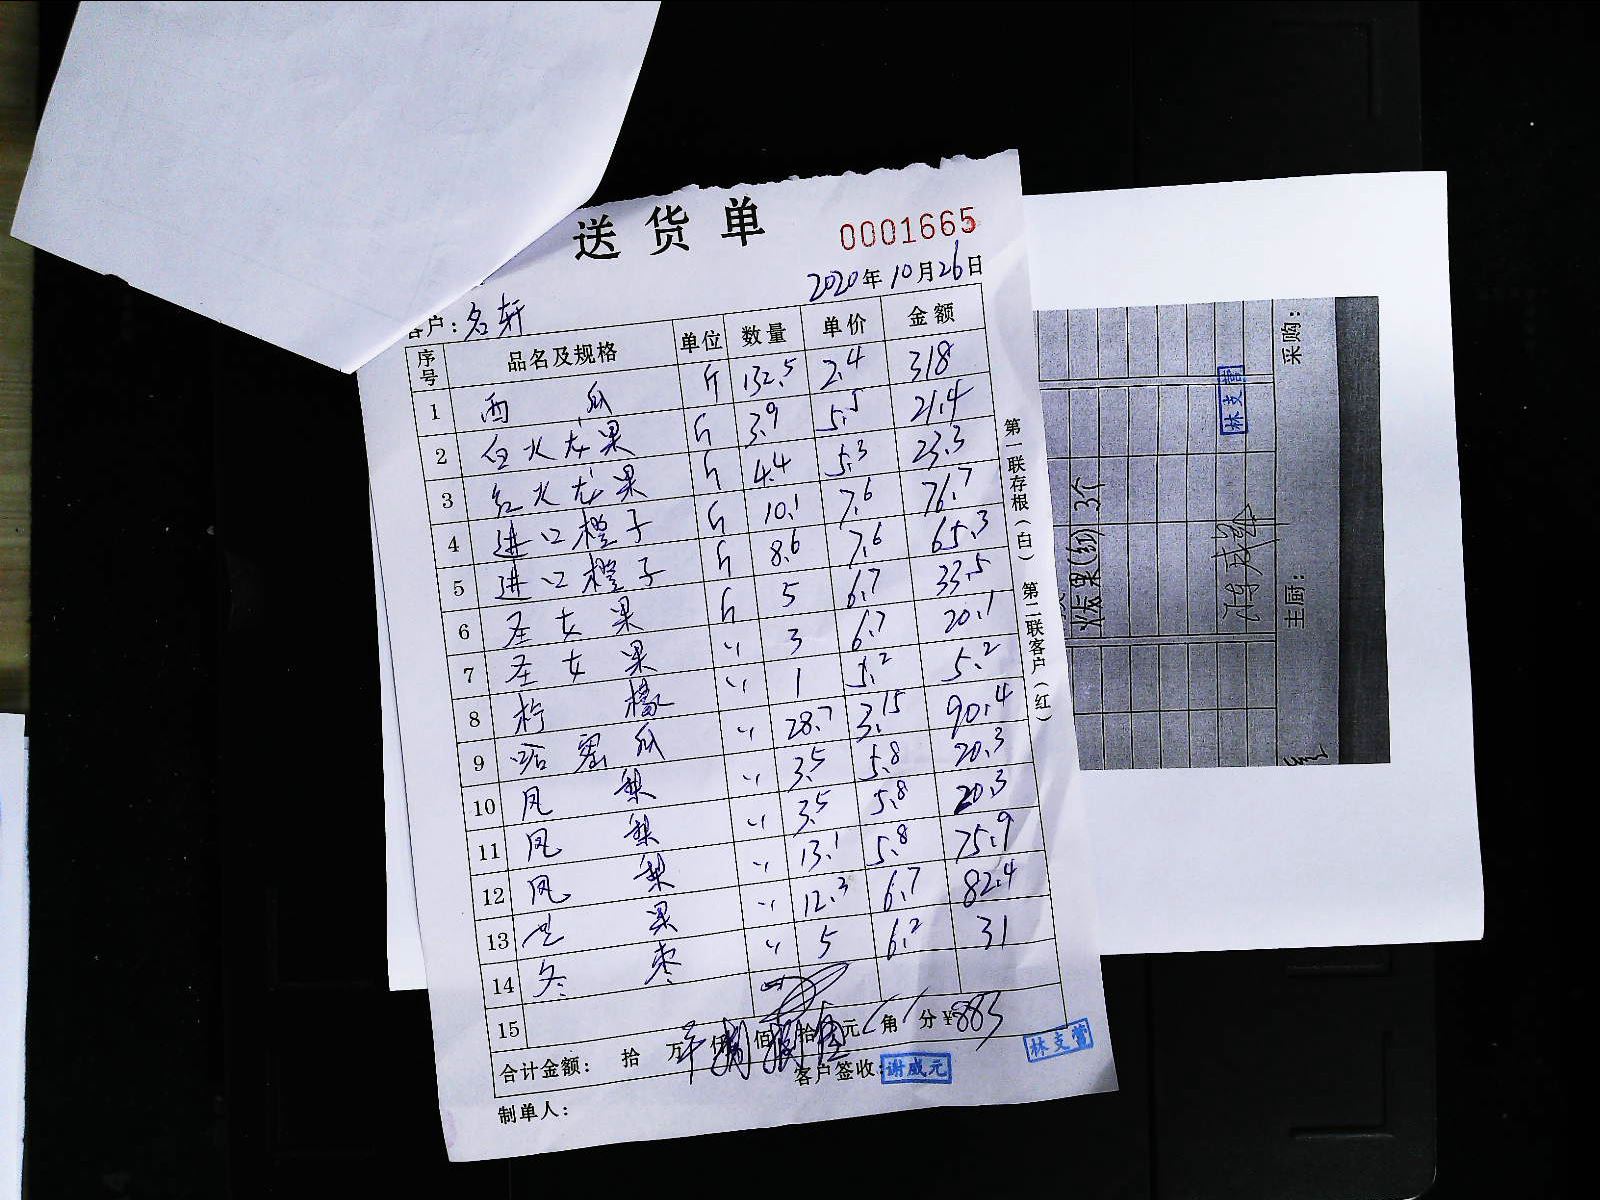 送货单
0001665
2020年10月26日
客户：名轩
序号 品名及规格 单位 数量 单价 金额
1 西瓜 斤 132.5 2.4 318
2 白火龙果 斤 3.9 5.5 21.4
3 红火龙果 斤 4.4 5.3 23.3
4 进口橙子 斤 10.1 7.6 76.7
5 进口橙子 斤 8.6 7.6 65.3
6 圣女果 斤 5 6.7 33.5
7 圣女果 〃 3 6.7 20.1
8 柠檬 〃 1 5.2 5.2
9 哈密瓜 〃 28.7 3.15 90.4
10 凤梨 〃 3.5 5.8 20.3
11 凤梨 〃 3.5 5.8 20.3
12 凤梨 〃 13.1 5.8 75.9
13 芒果 〃 12.3 6.7 82.4
14 冬枣 〃 5 6.2 31
15
合计金额： 拾 万 仟 佰 拾 元 角 分 ¥883
制单人：
客户签收：谢威元
林支营
第一联存根（白） 第二联客户（红）
火龙果(红) 3个
林支营
主厨：
采购：